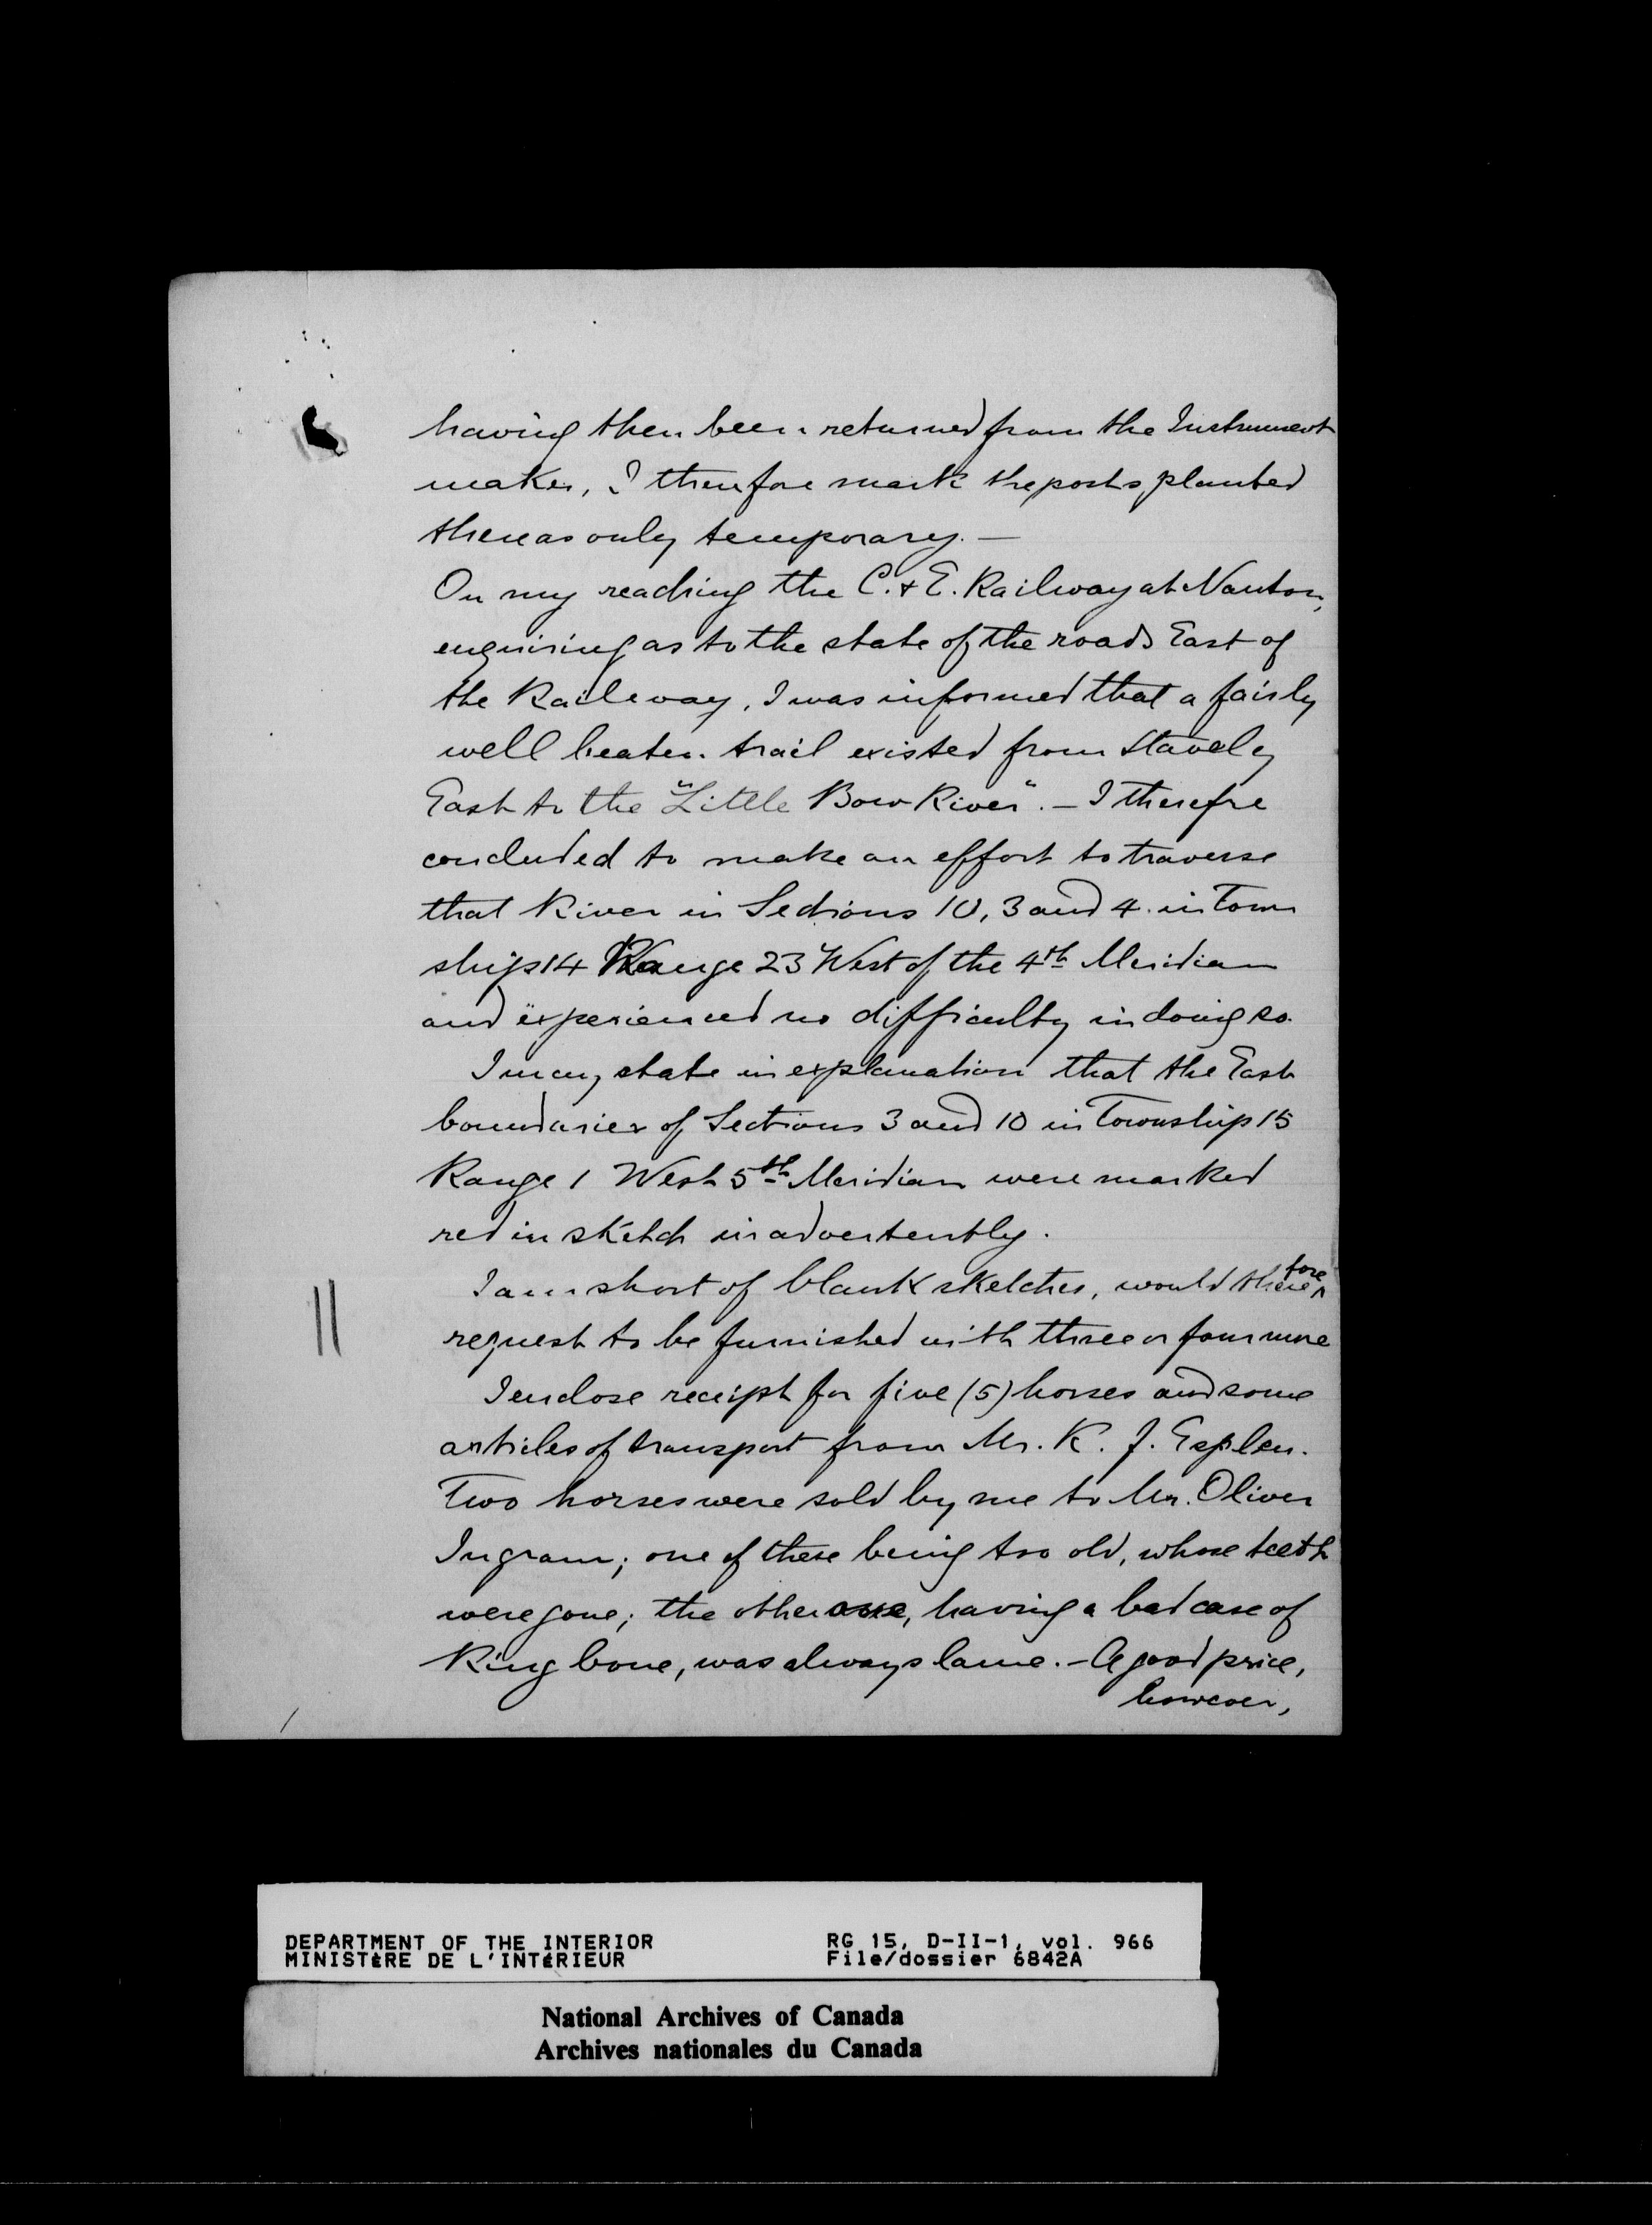 having then been returned from the Instrument
maker, I therefore mark the posts planted
there as only temporary. —
On my reaching the C. & E. Railway at Nanton,
enquiring as to the state of the roads East of
the Railway, I was informed that a fairly
well beaten trail existed from Stavely
East to the "Little Bow River". — I therefre
concluded to make an effort to traverse
that River in Sections 10, 3 and 4. in Town
ship 14 Range 23 West of the 4th Meridian
and experienced no difficulty in doing so.
I may state in explanation that the East
boundaries of Sections 3 and 10 in Township 15
Range 1 West 5th Meridian were marked
red in sketch inadvertently.
I am short of blank sketches, would therefore
request to be furnished with three or four more
I enclose receipt for five (5) horses and some
articles of transport from Mr. K. J. Esplen.
Two horses were sold by me to Mr. Oliver
Ingram; one of these being too old, whose teeth
were gone; the other one, having a bad case of
Ring bone, was always lame. — A good price,
however,
DEPARTMENT OF THE INTERIOR RG 15, D-II-1, vol. 966
MINISTèRE DE L'INTéRIEUR File/dossier 6842A
National Archives of Canada
Archives nationales du Canada